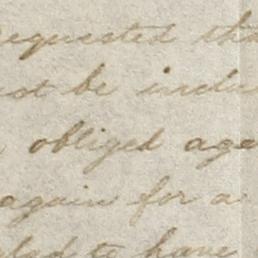 requested tha
not be indu
obliged age
again for a
glad to have